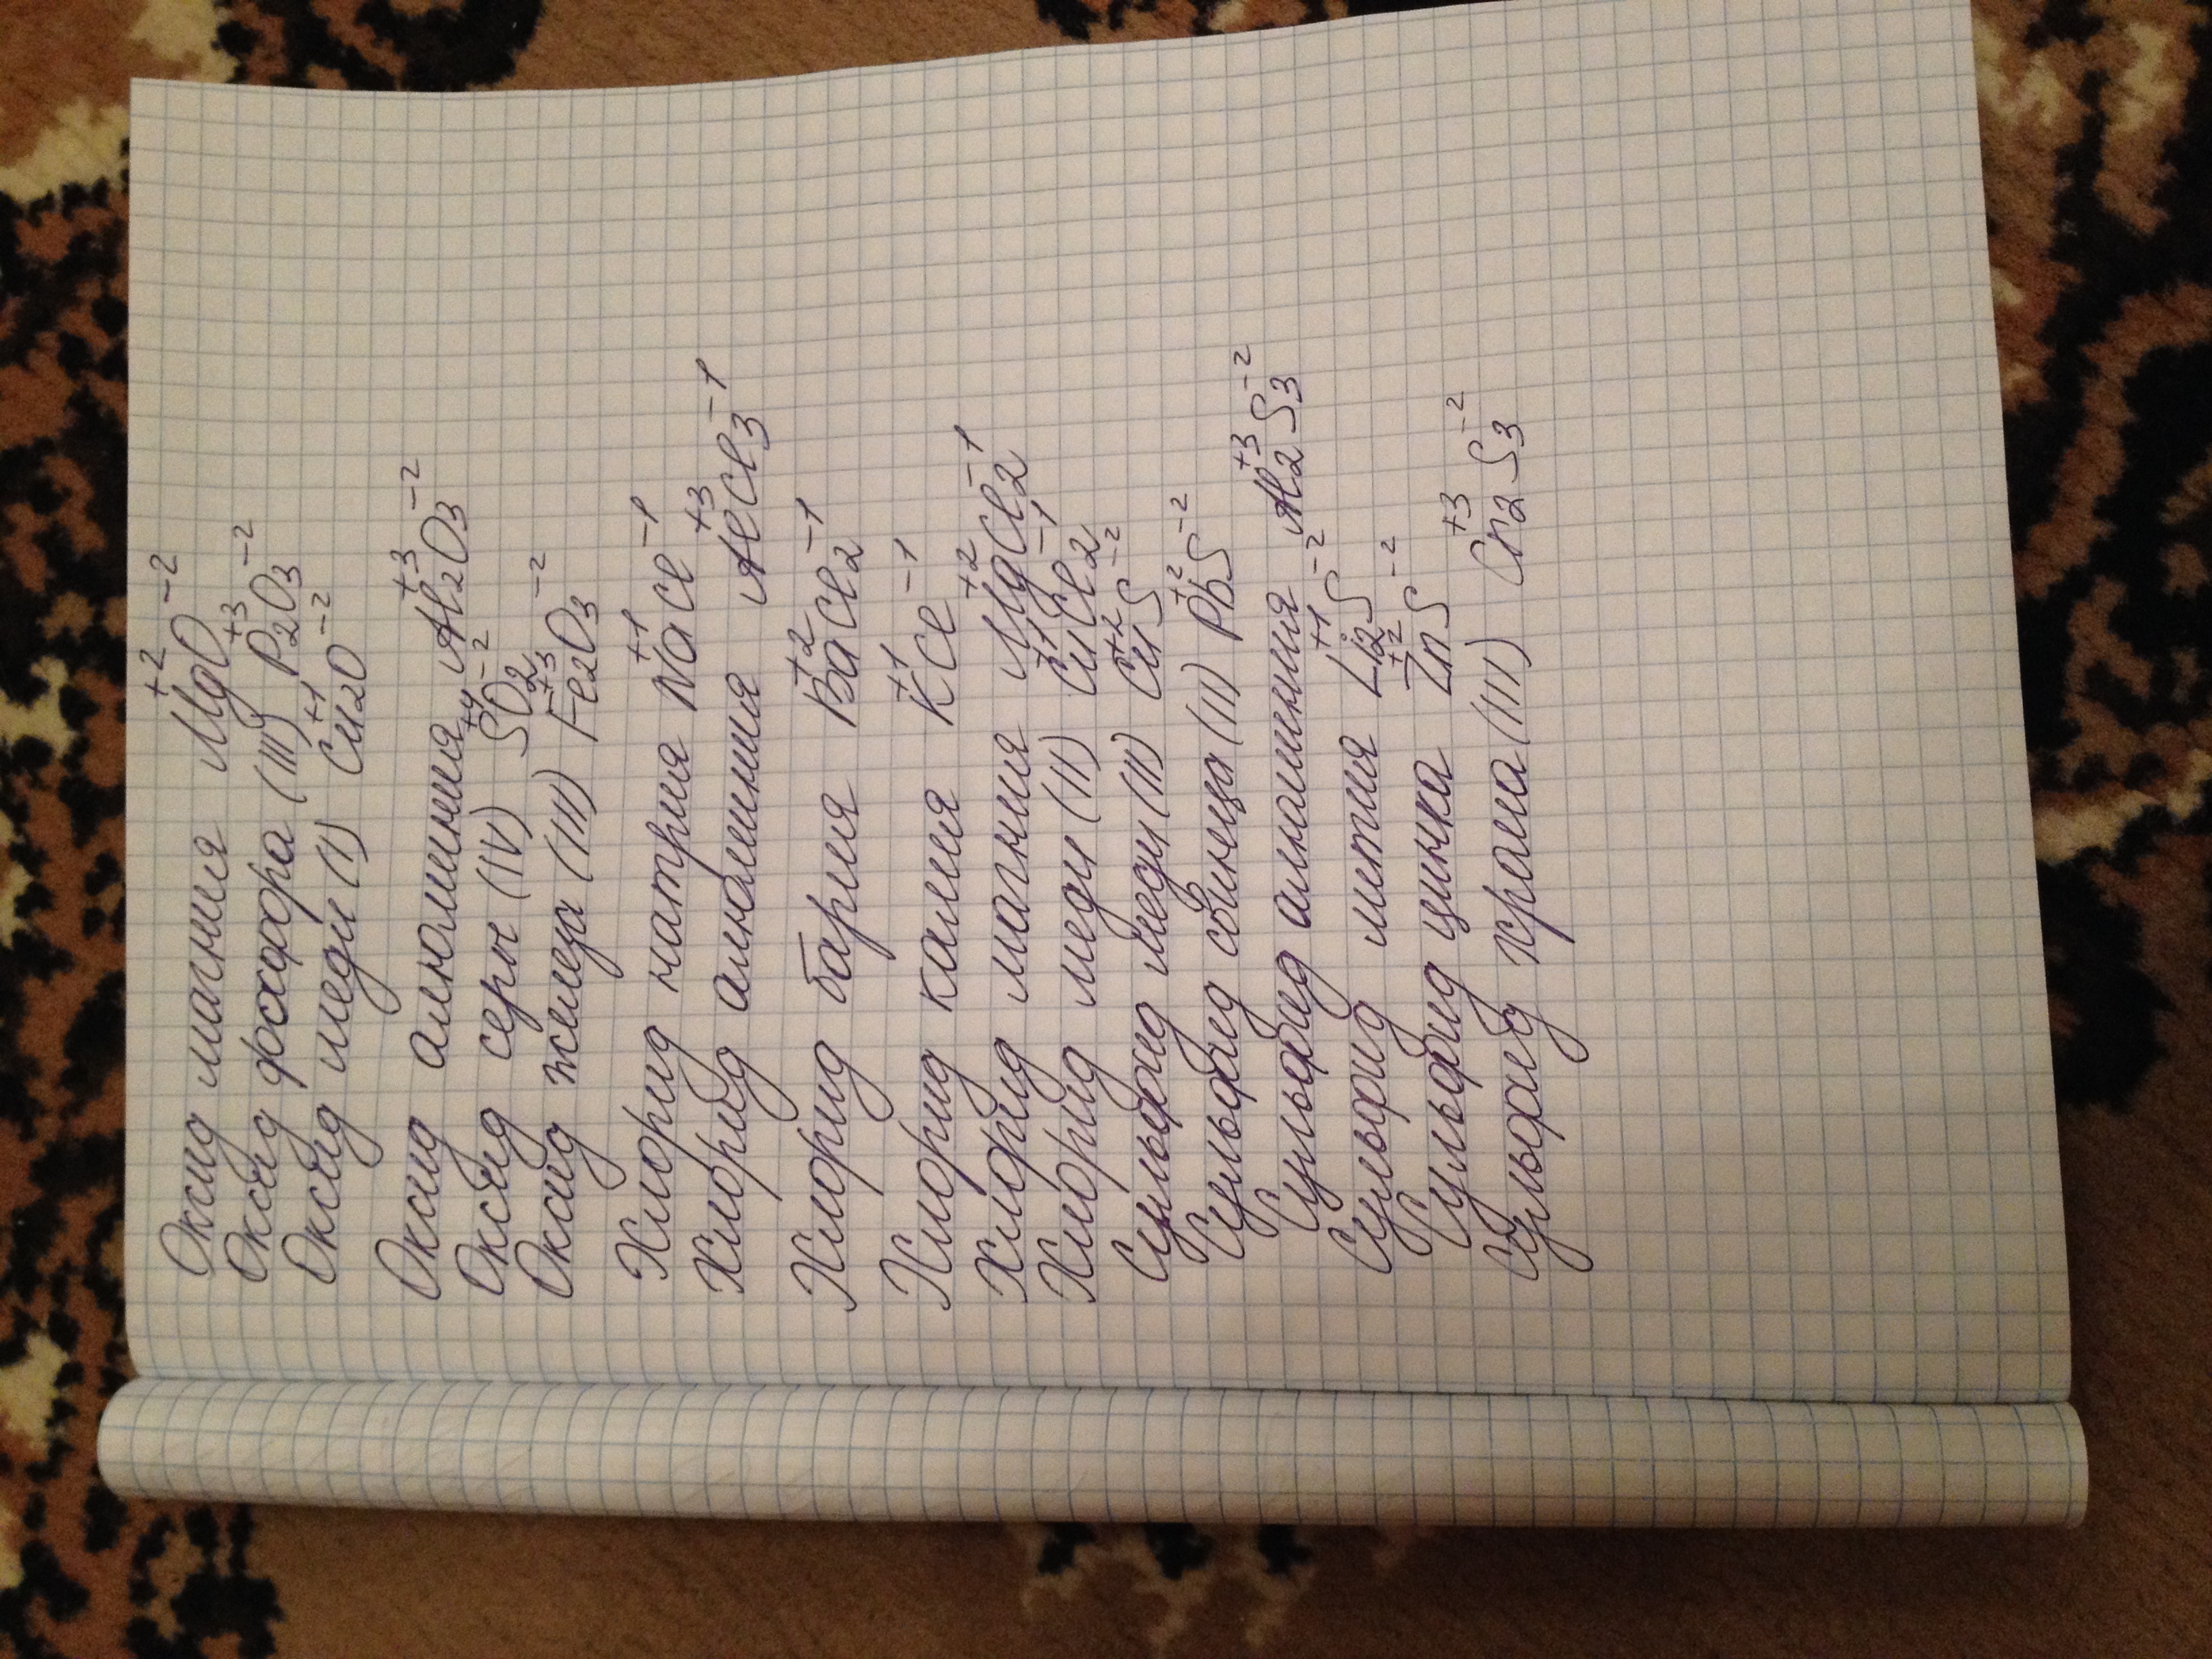 Оксид магния Mg⁺²O⁻²
Оксид фосфора (III) P₂⁺³O₃⁻²
Оксид меди (I) Cu₂⁺¹O⁻²
Оксид алюминия Al₂⁺³O₃⁻²
Оксид серы (IV) S⁺⁴O₂⁻²
Оксид железа (III) Fe₂⁺³O₃⁻²
Хлорид натрия Na⁺¹Cl⁻¹
Хлорид алюминия Al⁺³Cl₃⁻¹
Хлорид бария Ba⁺²Cl₂⁻¹
Хлорид калия K⁺¹Cl⁻¹
Хлорид магния Mg⁺²Cl₂⁻¹
Хлорид меди (II) Cu⁺¹Cl₂⁻¹
Сульфид меди (II) Cu⁺²S⁻²
Сульфид свинца (II) Pb⁺²S⁻²
Сульфид алюминия Al₂⁺³S₃⁻²
Сульфид лития Li₂⁺¹S⁻²
Сульфид цинка Zn⁺²S⁻²
Сульфид хрома (III) Cr₂⁺³S₃⁻²